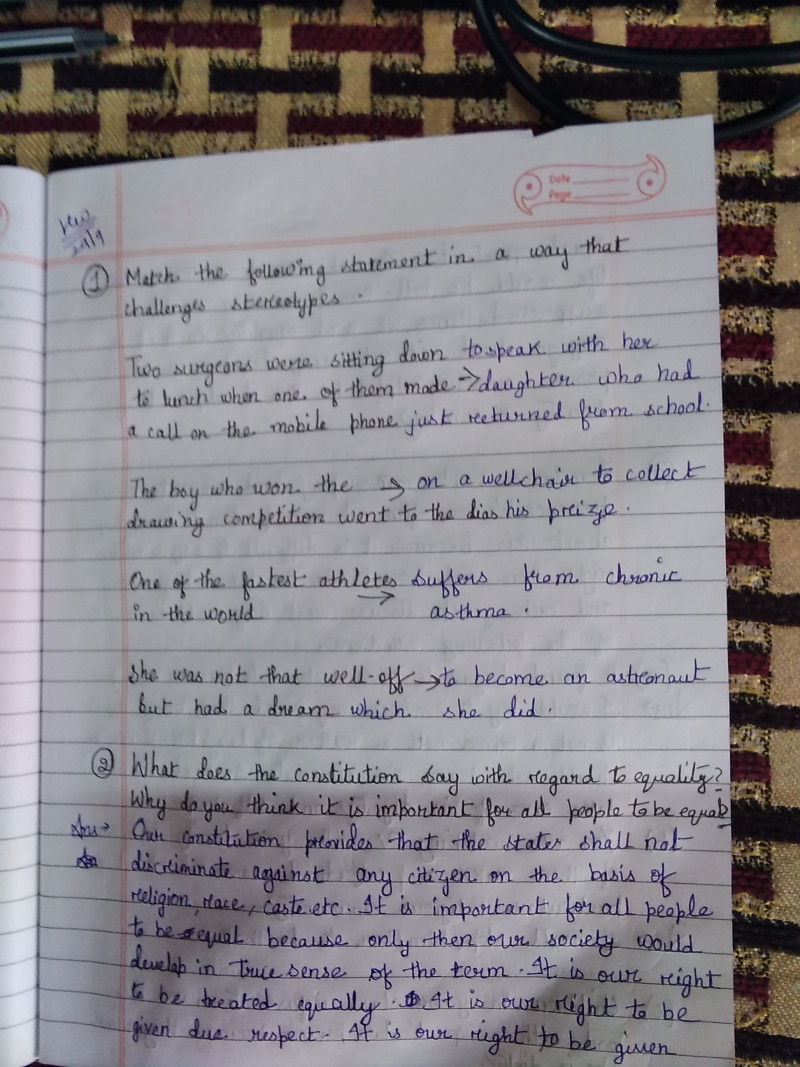 Date
Page
H.W
29/9
① Match the following statement in a way that
challenges stereotypes.
Two surgeons were sitting down to speak with her
to lunch when one of them made → daughter who had
a call on the mobile phone just returned from school.
The boy who won the → on a wellchair to collect
drawing competition went to the dias his preize.
One of the fastest athletes → suffers from chronic
in the world asthma.
She was not that well-off → to become an astronaut
but had a dream which she did.
② What does the constitution say with regard to equality?
Why do you think it is important for all people to be equal?
Ans→ Our constitution provides that the states shall not
discriminate against any citizen on the basis of
religion, race, caste etc. It is important for all people
to be equal because only then our society would
develop in true sense of the term. It is our right
to be treated equally. It is our right to be
given due respect. It is our right to be given